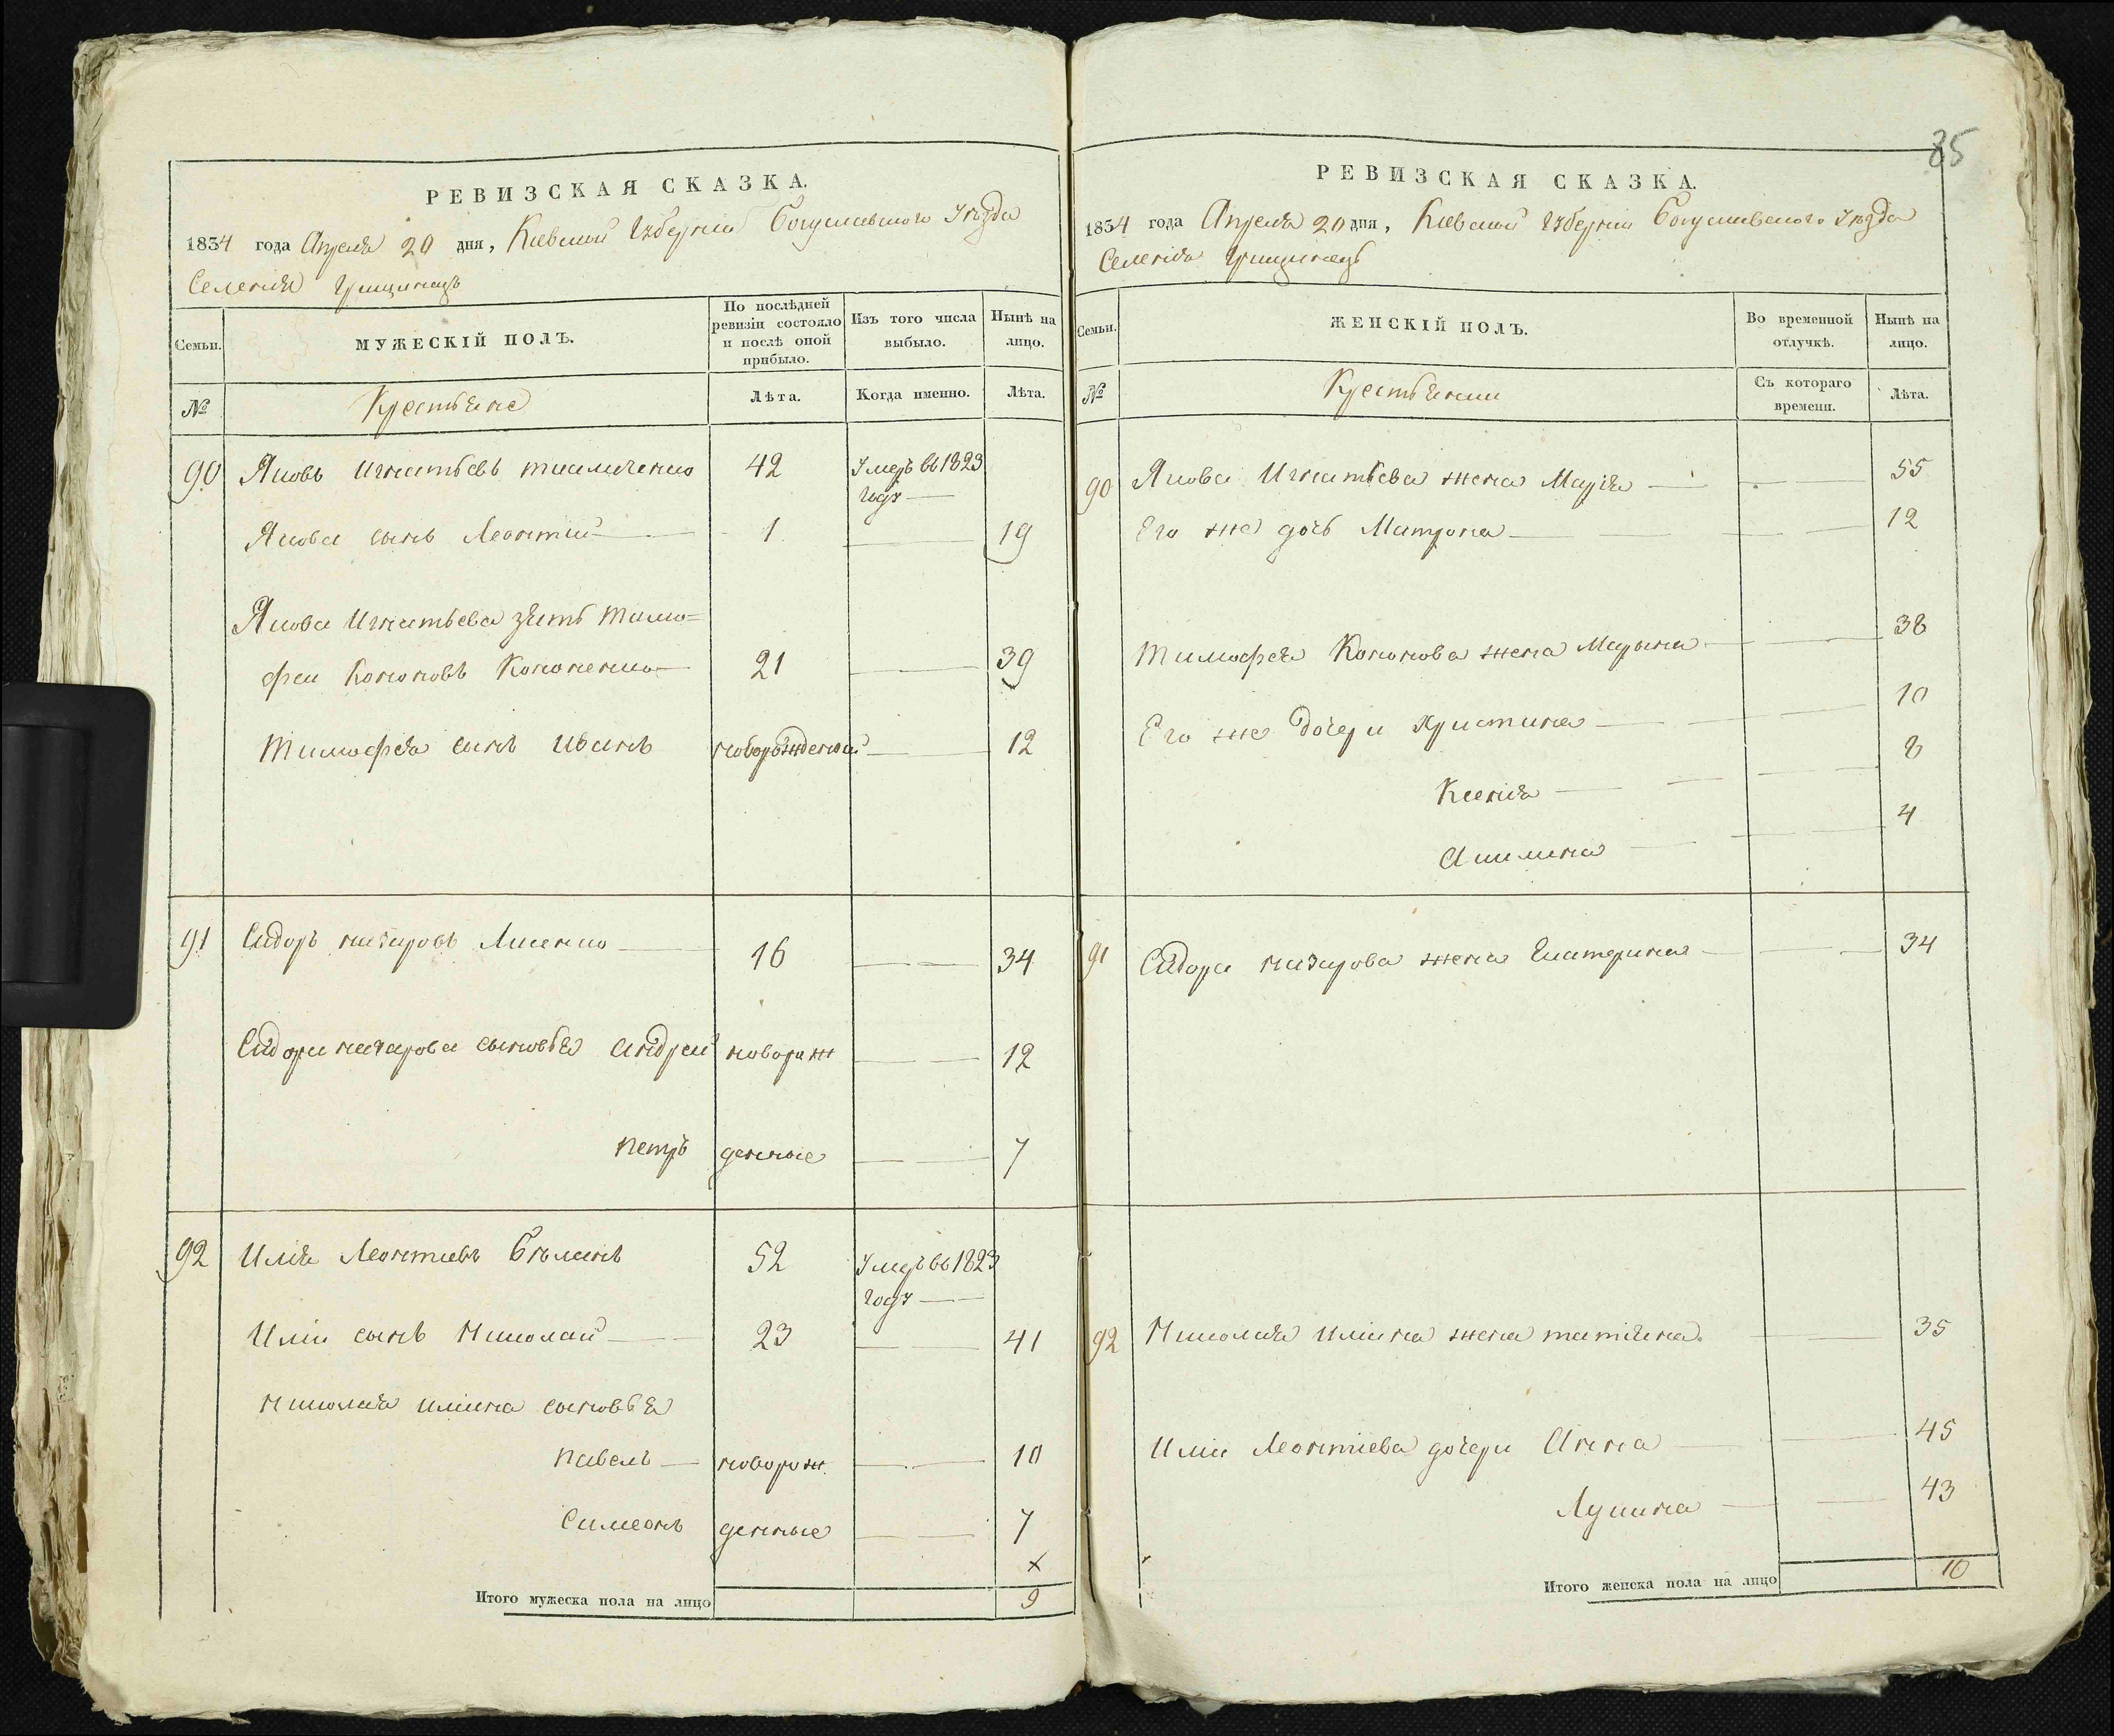 РЕВИЗСКАЯ СКАЗКА.
1834 года Апреля 20 дня, Кіевской Губерніи Богуславского Уѣзда
Селенія Грищинецъ
Семьи.
МУЖЕСКІЙ ПОЛЪ.
По послѣдней ревизіи состояло и послѣ оной прибыло.
Изъ того числа выбыло.
Нынѣ на лицо.
№
Крестьяне
Лѣта.
Когда именно.
Лѣта.
90 Яковъ Игнатьевъ 42 Умеръ въ 1823
году
Якова сынъ Леонтий 1 19
Якова Игнатьева зять Тимо=
фей Кононовъ Кононенко 21 39
Тимофея сынъ Иванъ новорожденой 12
91 Сидоръ Назаровъ Лисенко 16 34
Сидора Назарова сыновья Андрей новорож 12
Петръ денные 7
92 Илія Леонтиевъ 52 Умеръ въ 1823
году
Иліи сынъ Николай 23 41
Николая Иліина сыновья
Павелъ новорож 10
Симеонъ денные 7
х
Итого мужеска пола на лицо 9
85
РЕВИЗСКАЯ СКАЗКА.
1834 года Апреля 20 дня, Кіевской Губерніи Богуславского Уѣзда
Селенія Грищинецъ
Семьи.
ЖЕНСКІЙ ПОЛЪ.
Во временной отлучкѣ.
Нынѣ на лицо.
№
Крестьянки
Съ котораго времени.
Лѣта.
90 Якова Игнатьева жена Марія 55
Его же дочь Матрона 12
Тимофея Кононова жена Марына 38
Его же дочери Христина 10
Ксенія 8
Акилина 4
91 Сидора Назарова жена Екатерина 34
92 Николая Иліина жена Татіяна 35
Иліи Леонтіева дочери Анна 45
Лукина 43
Итого женска пола на лицо 10